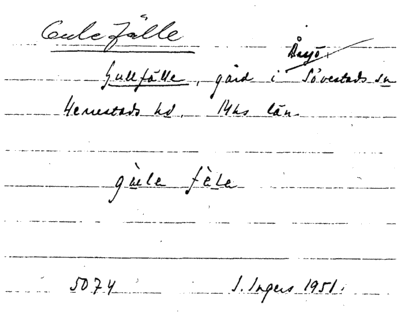 Gulefälle
Åsjö
Gullfälle, gård i Sövestads sn
Herrestads hd. Mhs län.
gule fäle
5074 I. Ingers 1951.